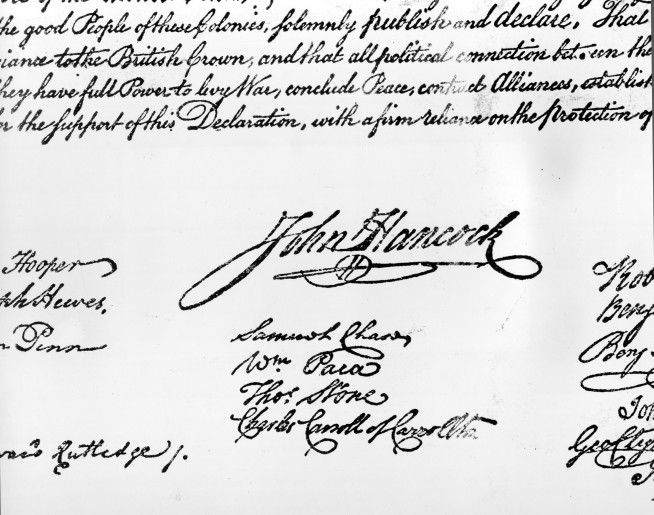 the good People of these Colonies, solemnly publish and declare, That
iance to the British Crown, and that all political connection between the
they have full Power to levy War, conclude Peace, contract Alliances, establish
or the support of this Declaration, with a firm reliance on the Protection of
John Hancock
Hooper
ph Hewes,
n Penn
Samuel Chase
Wm. Paca
Thos. Stone
Charles Carroll of Carrollton
ward Rutledge /.
Rob
Benj
Benj
Joh
Geo Clym